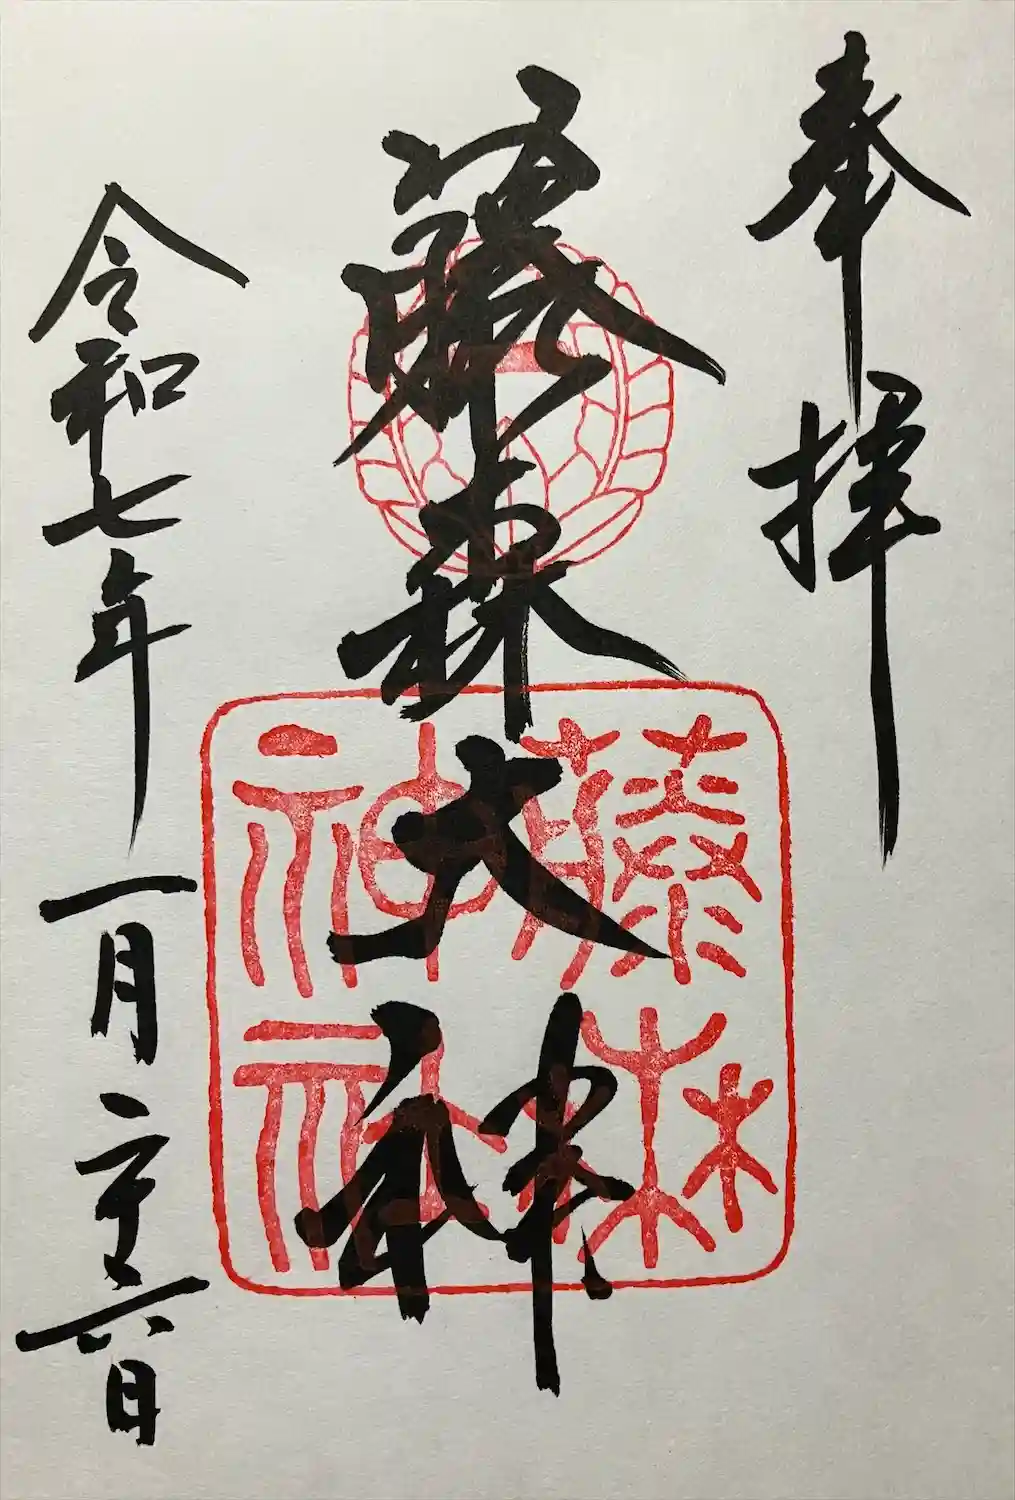 奉拝
藤森大神
藤森
神社
令和七年一月二十六日